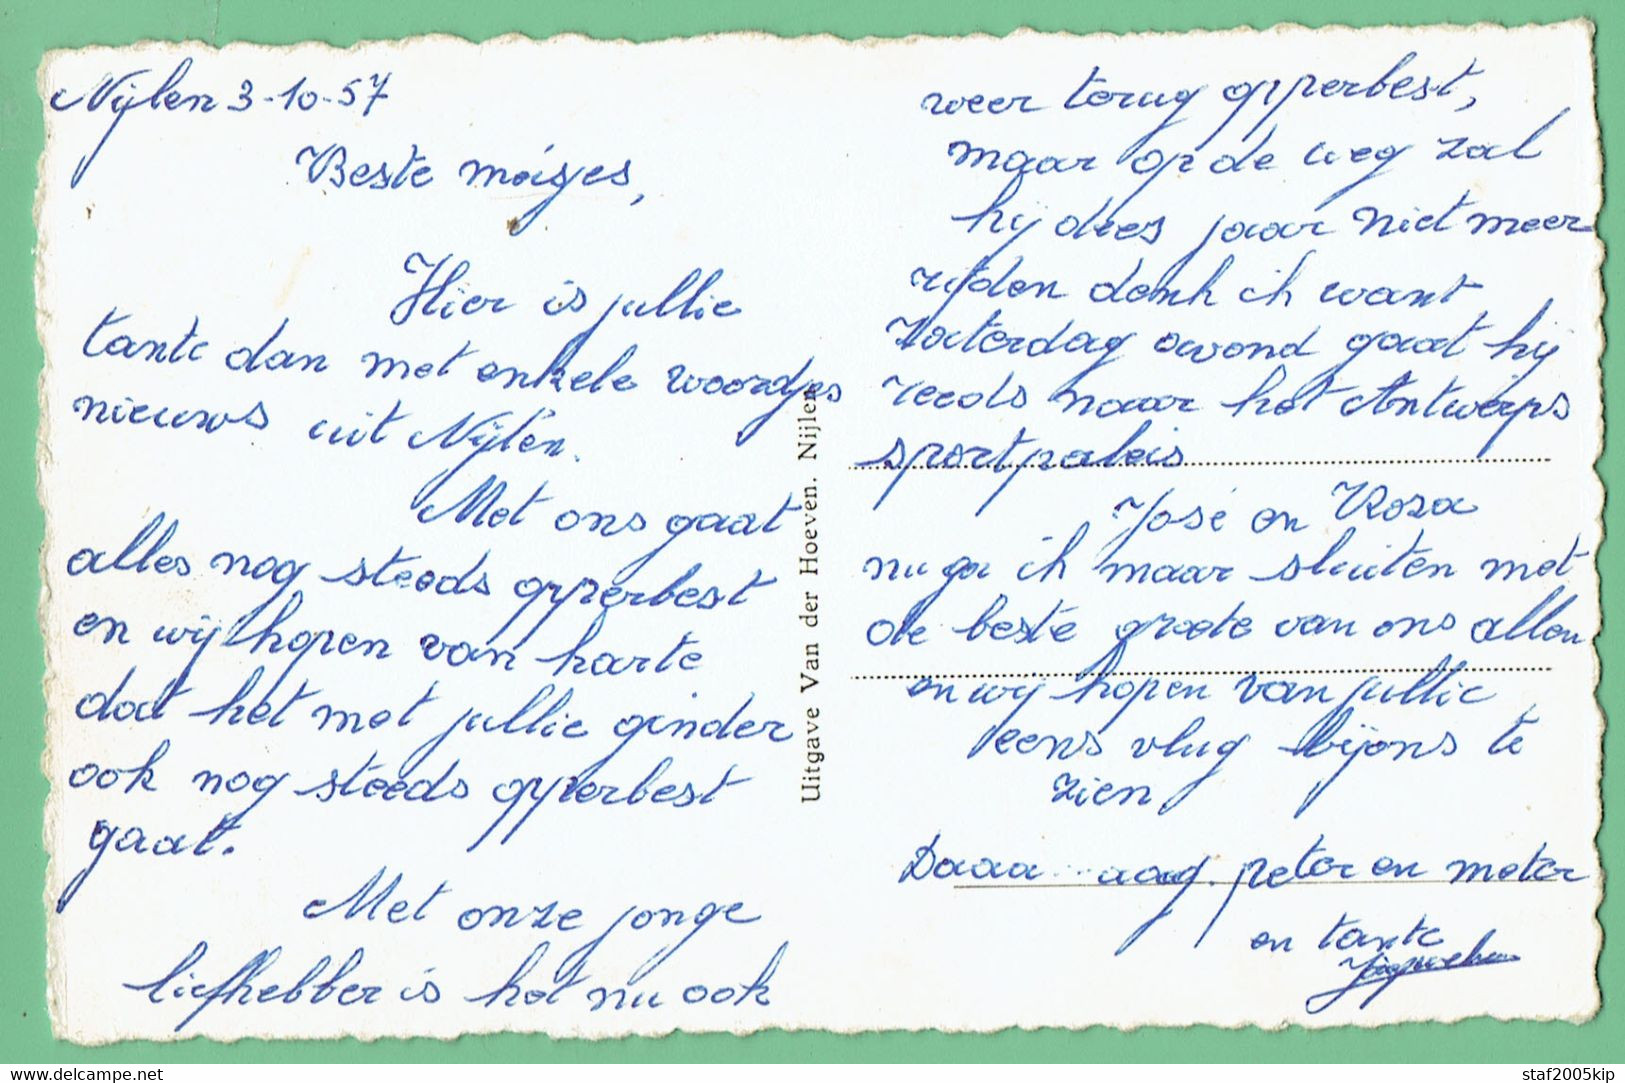 Nijlen 3-10-57
Beste moisjes,
Hier is jullie
tante dan met enkele woordjes
nieuws uit Nijlen.
Met ons gaat
alles nog steeds opperbest
en wij hopen van harte
dat het met jullie ginder
ook nog steeds opperbest
gaat.
Met onze jonge
liefhebber is het nu ook
Uitgave Van der Hoeven. Nijlen
weer terug opperbest,
maar op de weg zal
hij dees jaar niet meer
rijden denk ik want
Zaterdag avond gaat hij
reeds naar het Antwerps
sportpaleis
José en Roza
nu ga ik maar sluiten met
de beste groete van ons allen
en wij hopen van jullie
eens vlug bij ons te
zien
Daaa...aag. peter en meter
en tante
Delcampe.net
staf2005kip